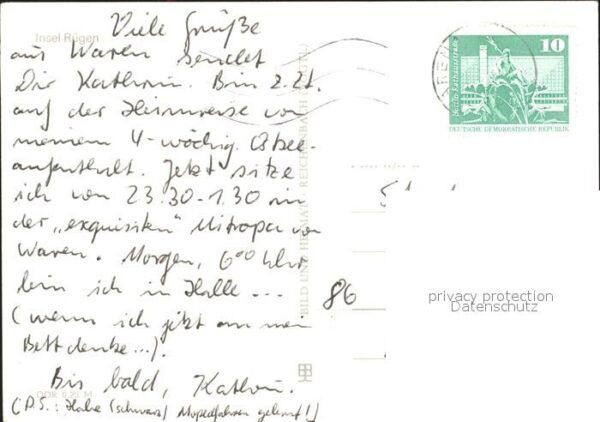 Insel Rügen
Viele Grüße
aus Waren sendet
Dir Kathrin. Bin z. Zt.
auf der Heimreise von
meinem 4-wöchig. Ostsee-
aufenthalt. Jetzt sitze
ich von 23.30-1.30 in
der „exquisiten" Mitropa von
Waren. Morgen, 6⁰⁰ Uhr
bin ich in Halle...
(wenn ich jetzt an mein
Bett denke...).
Bis bald, Kathrin.
(P.S.: Habe (schwarz) Mopedfahren gelernt!)
DDR 0,20 M
BILD UND HEIMAT REICHENBACH
86
10
Berlin-Rathausstraße
DEUTSCHE DEMOKRATISCHE REPUBLIK
privacy protection
Datenschutz